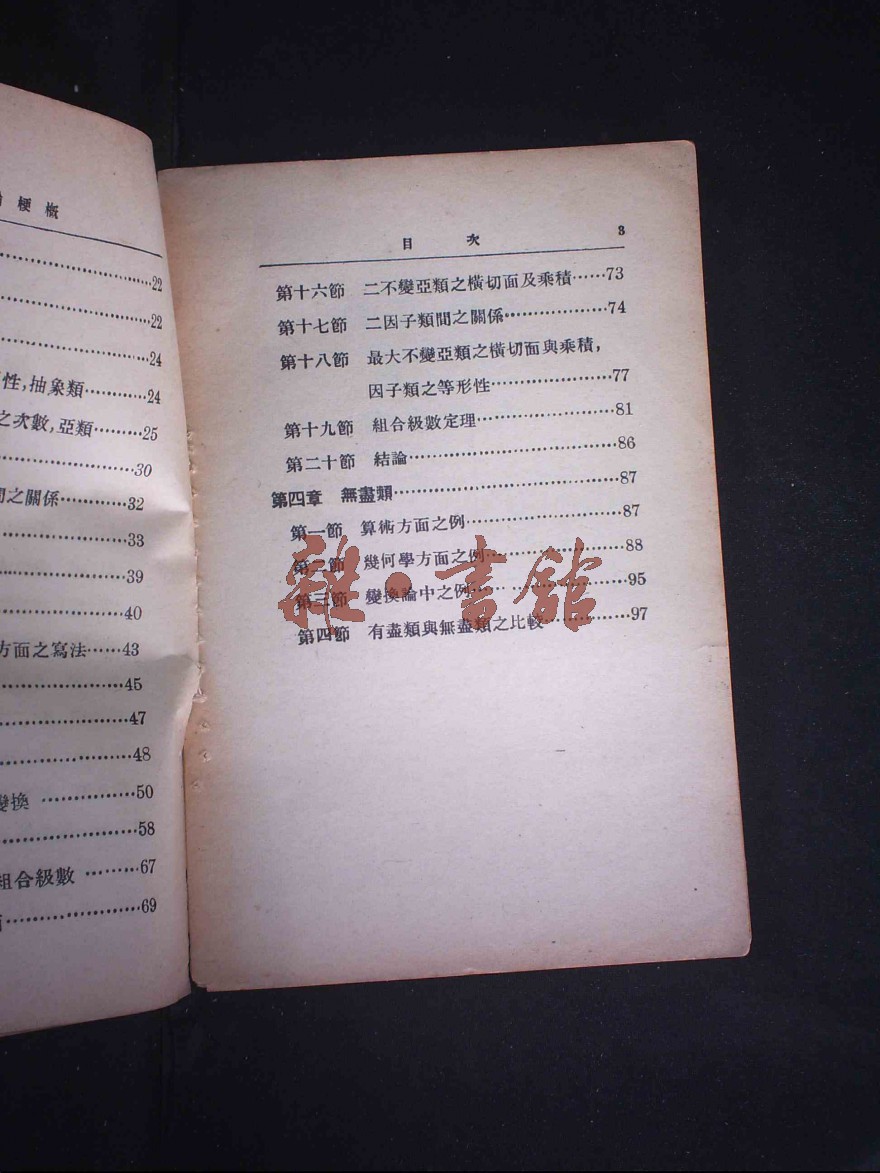 梗概
22
22
24
性,抽象類…………24
之次數,亞類………25
30
間之關係…………32
33
39
40
方面之寫法……43
45
47
48
變換………………50
58
組合級數………67
69
目次 3
第十六節 二不變亞類之橫切面及乘積……73
第十七節 二因子類間之關係………………74
第十八節 最大不變亞類之橫切面與乘積,
因子類之等形性………………77
第十九節 組合級數定理………………81
第二十節 結論………………86
第四章 無盡類………………87
第一節 算術方面之例………………87
第二節 幾何學方面之例………………88
第三節 變換論中之例………………95
第四節 有盡類與無盡類之比較…………97
雜·書館